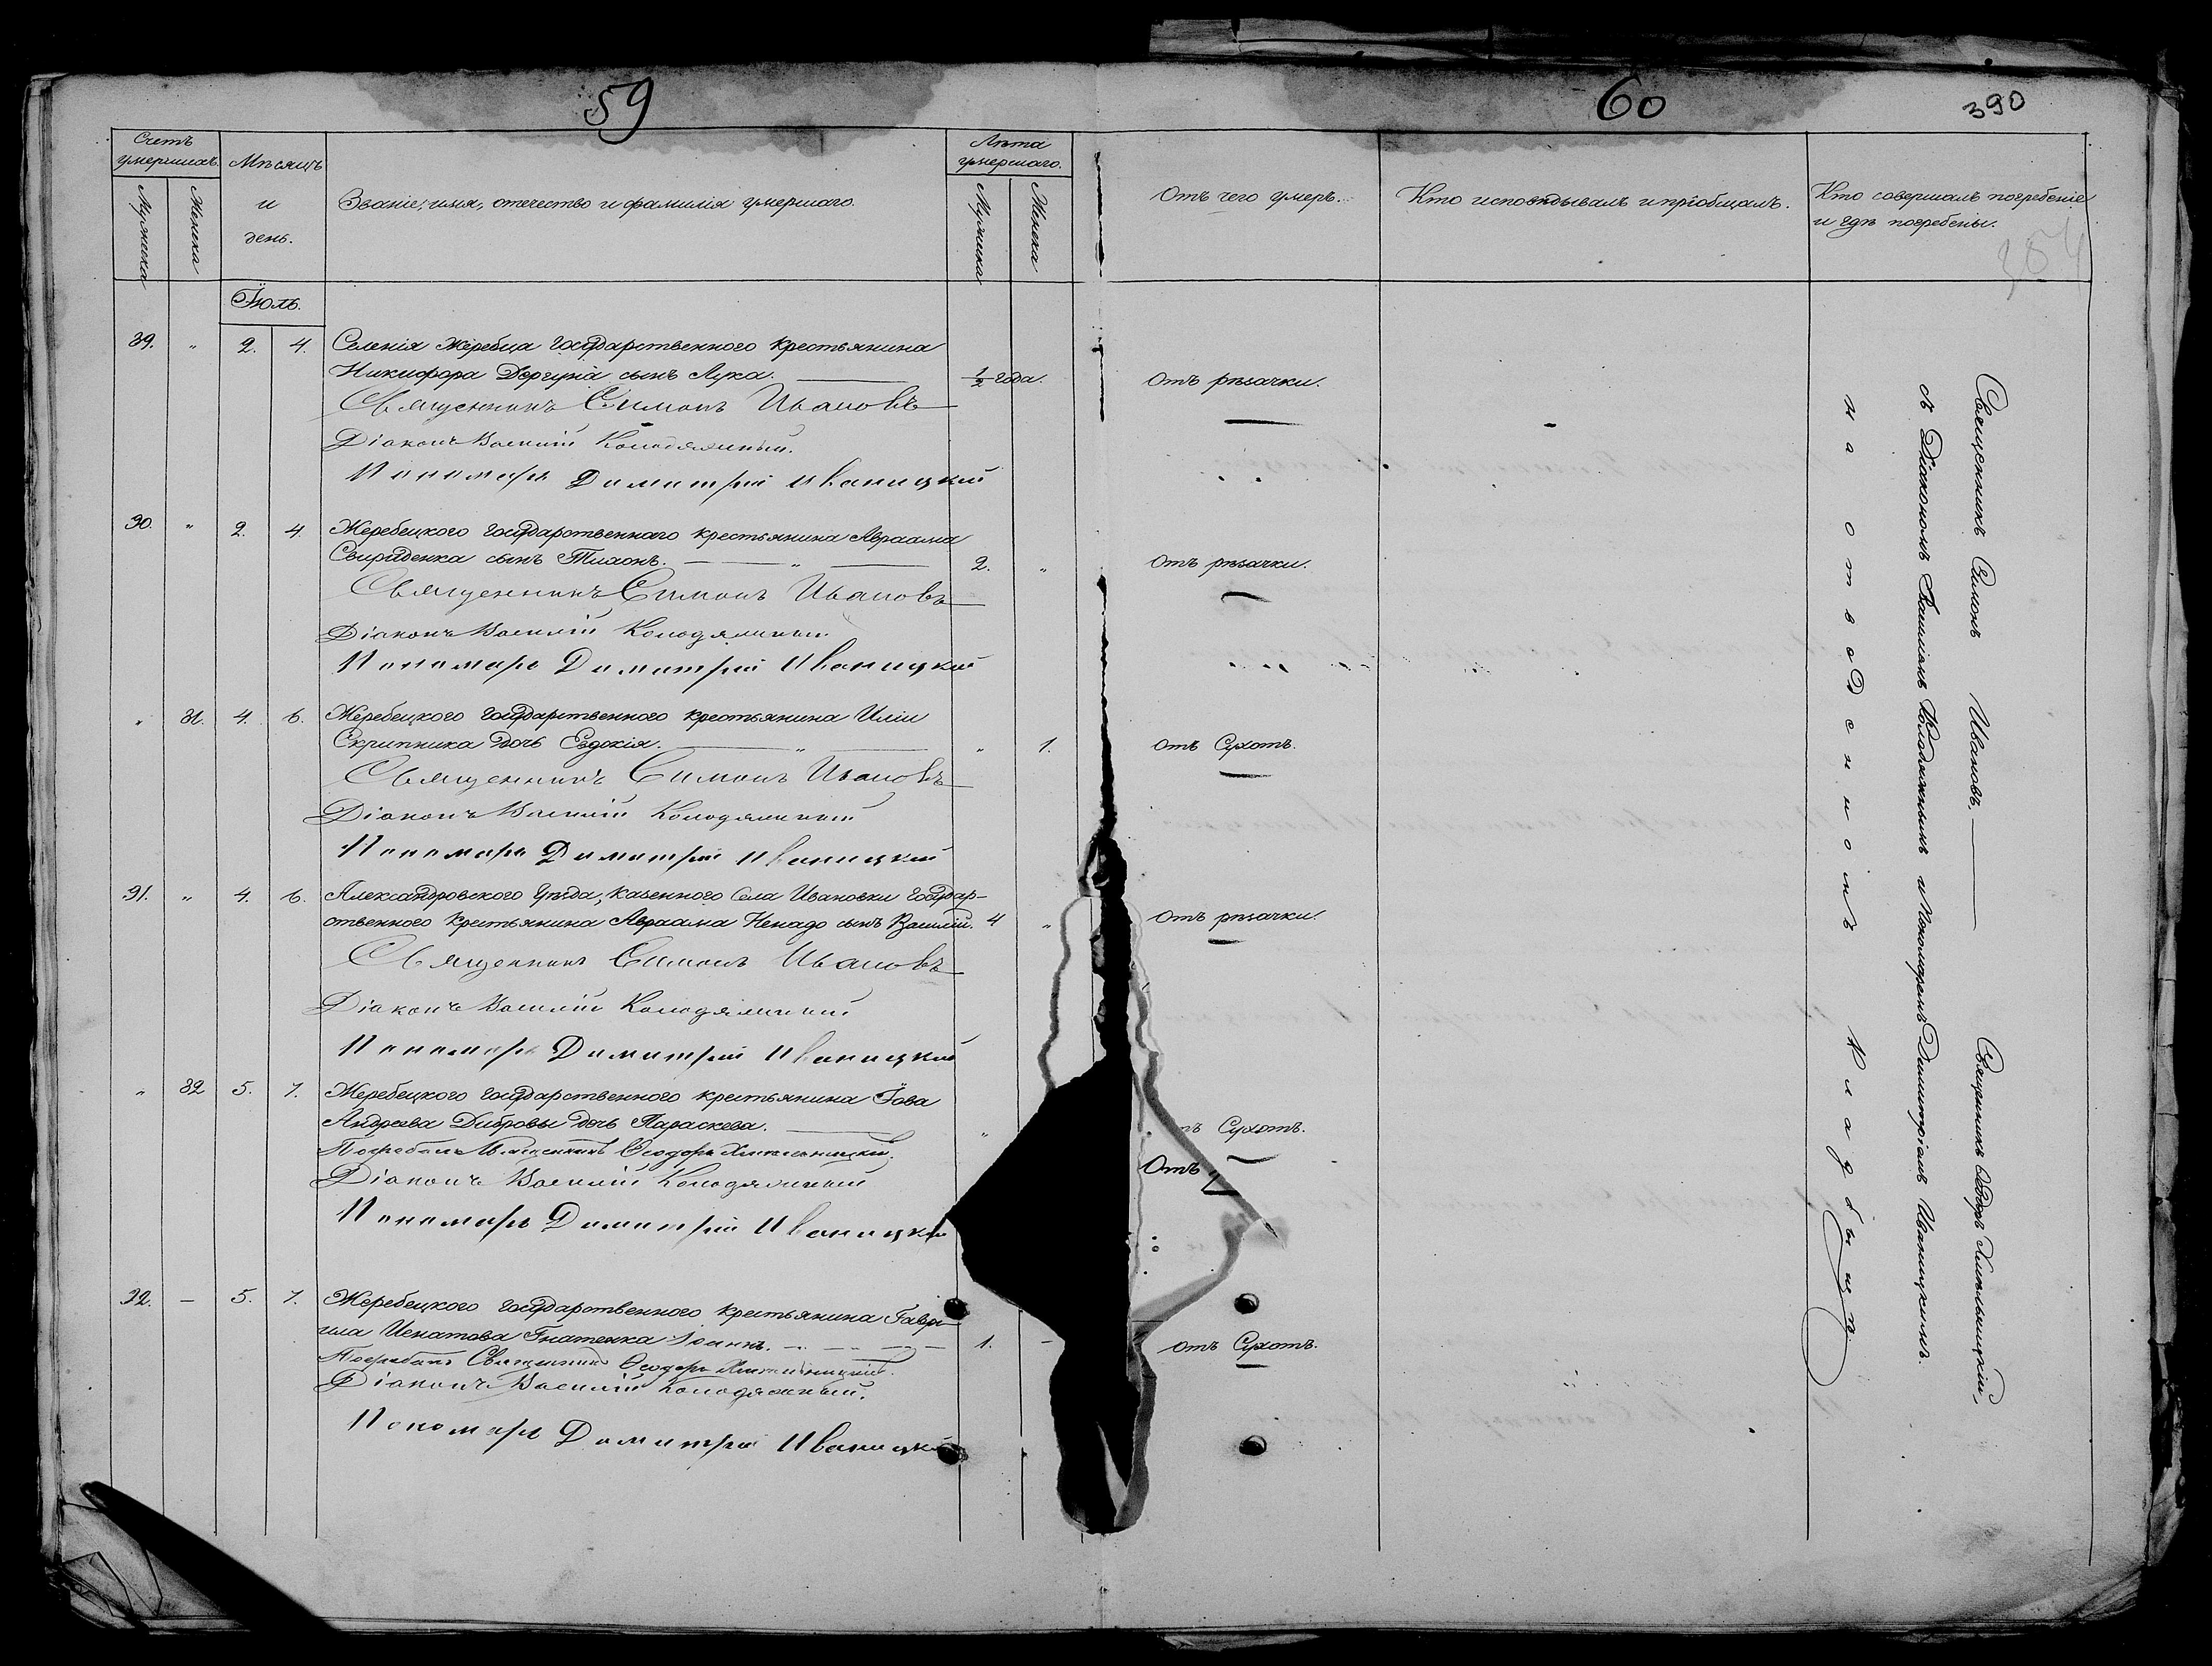 59
60
390
Счетъ умершихъ.
Мужеска
Женска
Мѣсяцъ и день.
Званіе, имя, отечество и фамилія умершаго.
Лѣта умершаго.
Мужеска
Женска
Отъ чего умеръ.
Кто исповѣдывалъ и пріобщалъ.
Кто совершалъ погребеніе и гдѣ погребены.
Іюль.
39. " 2. 4. Селенія Жеребца Государственного крестьянина
Никифора Дергуна сынъ Лука. 1/2 года. Отъ рѣзачки.
Священникъ Симонъ Ивановъ
Діаконъ Василій Колодяжный.
Пономарь Димитрій Иваницкій
30. " 2. 4. Жеребецкого Государственнаго крестьянина Авраама
Свириденка сынъ Тихонъ. 2. " Отъ рѣзачки.
Священникъ Симонъ Ивановъ
Діаконъ Василій Колодяжный
Пономарь Димитрій Иваницкій
" 31. 4. 6. Жеребецкого Государственного крестьянина Иліи
Скрипника дочь Евдокія. " 1. Отъ Сухотъ.
Священникъ Симонъ Ивановъ
Діаконъ Василій Колодяжный
Пономарь Димитрій Иваницкій
31. " 4. 6. Александровского Уѣзда, казенного Села Ивановки Государ-
ственного Крестьянина Авраама Ненадо сынъ Василій. 4 " Отъ рѣзачки.
Священникъ Симонъ Ивановъ
Діаконъ Василій Колодяжный
Пономарь Димитрій Иваницкій
" 32 5. 7. Жеребецкого Государственного крестьянина Іова
Андреева Дибровы дочь Параскева. " Сухотъ.
Отъ
Погребалъ Священникъ Ѳеодоръ Хмельницкій.
Діаконъ Василій Колодяжный
Пономарь Димитрій Иваницкій
32. — 5. 7. Жеребецкого Государственного крестьянина Гаврі-
ила Игнатова Гнатенка Іоаннъ. 1. — Отъ Сухотъ.
Погребалъ Священникъ Ѳеодоръ Хмельницкій.
Діаконъ Василій Колодяжный.
Пономарь Димитрій Иваницкій
Священникъ Симонъ Ивановъ. Священникъ Ѳеодоръ Хмельницкій,
съ Діакономъ Василіемъ Колодяжнымъ и Пономаремъ Димитріемъ Иваницкимъ.
на отведенномъ Кладбищѣ.